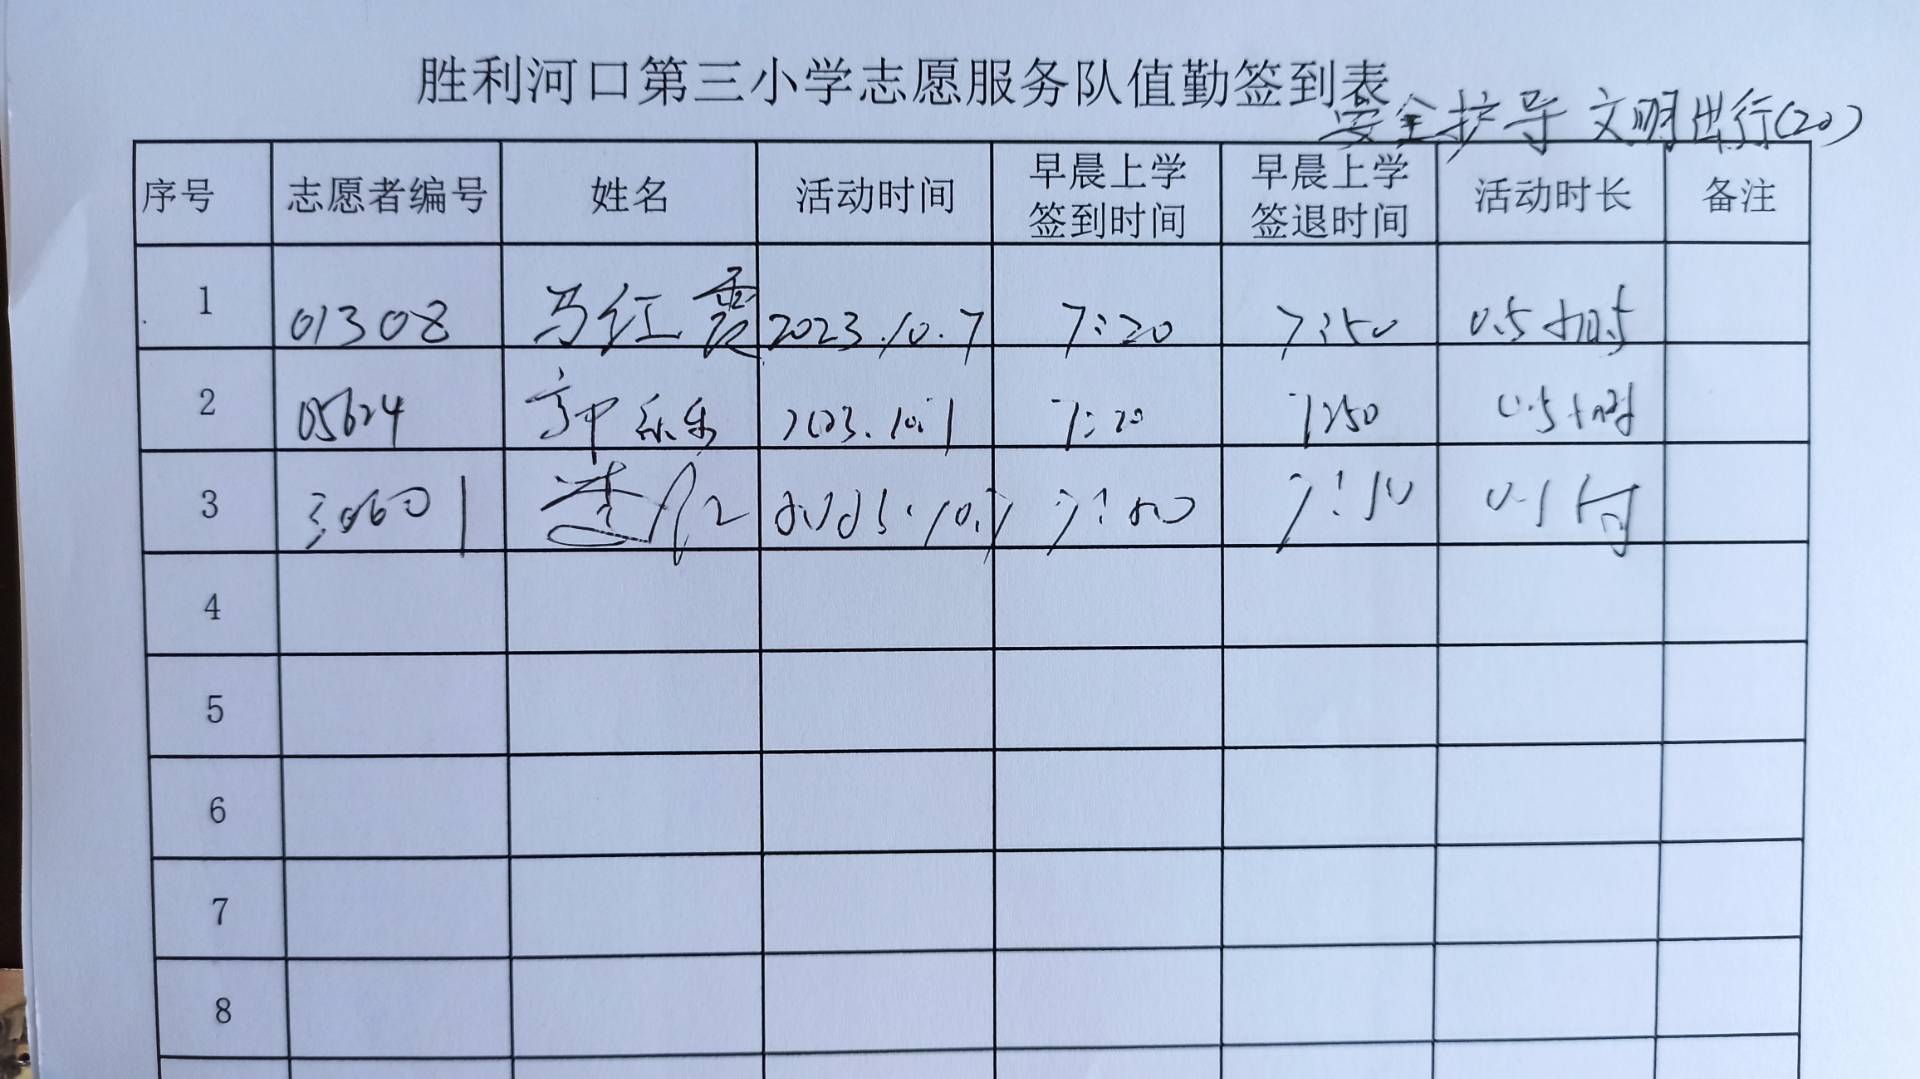 胜利河口第三小学志愿服务队值勤签到表
安全护导 文明出行(20)
序号 志愿者编号 姓名 活动时间 早晨上学签到时间 早晨上学签退时间 活动时长 备注
1 01308 马红霞 2023.10.7 7:20 7:50 0.5小时
2 05624 乐乐 7:20 7:50 0.5小时
3 10.7
4
5
6
7
8